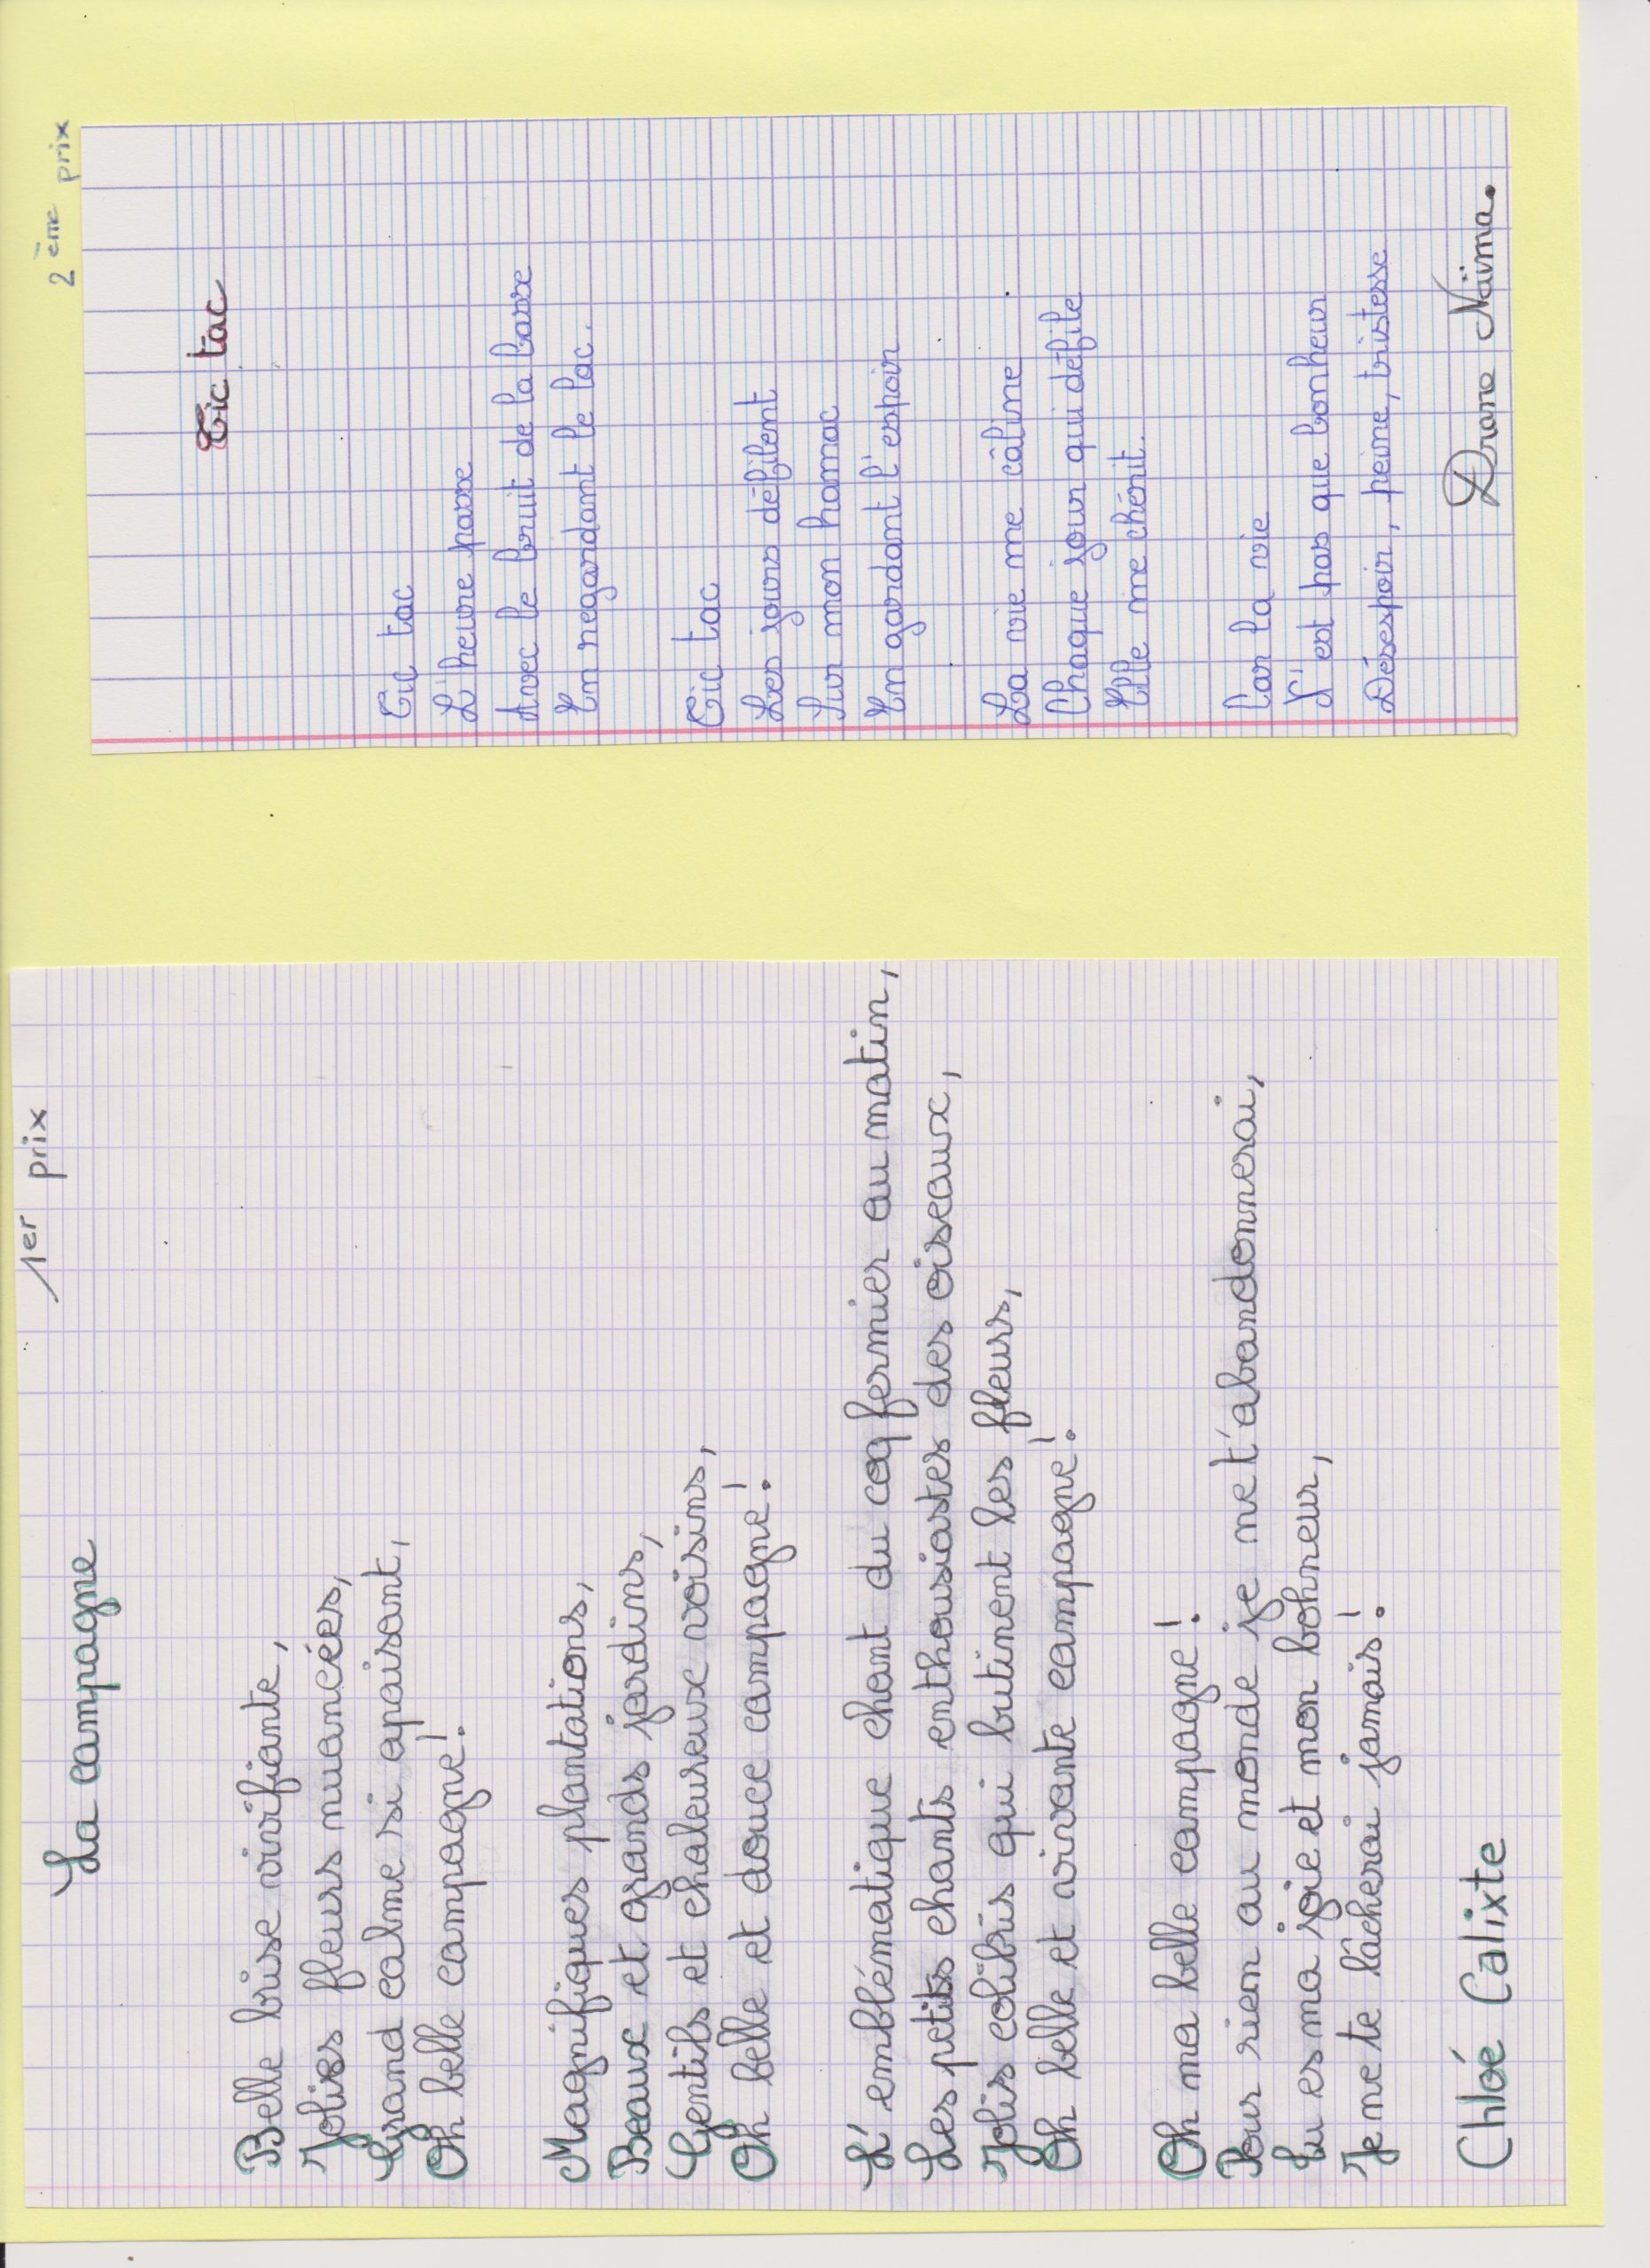 1er prix
La campagne
Belle brise vivifiante,
Jolies fleurs nuancées,
Grand calme si apaisant,
Oh belle campagne!
Magnifiques plantations,
Beaux et grands jardins,
Gentils et chaleureux voisins,
Oh belle et douce campagne!
L'emblématique chant du coq fermier au matin,
Les petits chants enthousiastes des oiseaux,
Jolis colibris qui butinent les fleurs,
Oh belle et vivante campagne!
Oh ma belle campagne!
Pour rien au monde je ne t'abandonnerai,
Tu es ma joie et mon bohneur,
Je ne te lâcherai jamais!
Chloé Calixte
2ème prix
Tic tac
Tic tac
L'heure passe
Avec le bruit de la basse
En regardant le lac.
Tic tac
Les jours défilent
Sur mon hamac
En gardant l'espoir
La vie me câline
Chaque jour qui défile
Elle me chérit.
Car la vie
N'est pas que bonheur
Désespoir, peine, tristesse
Drane Naïma.